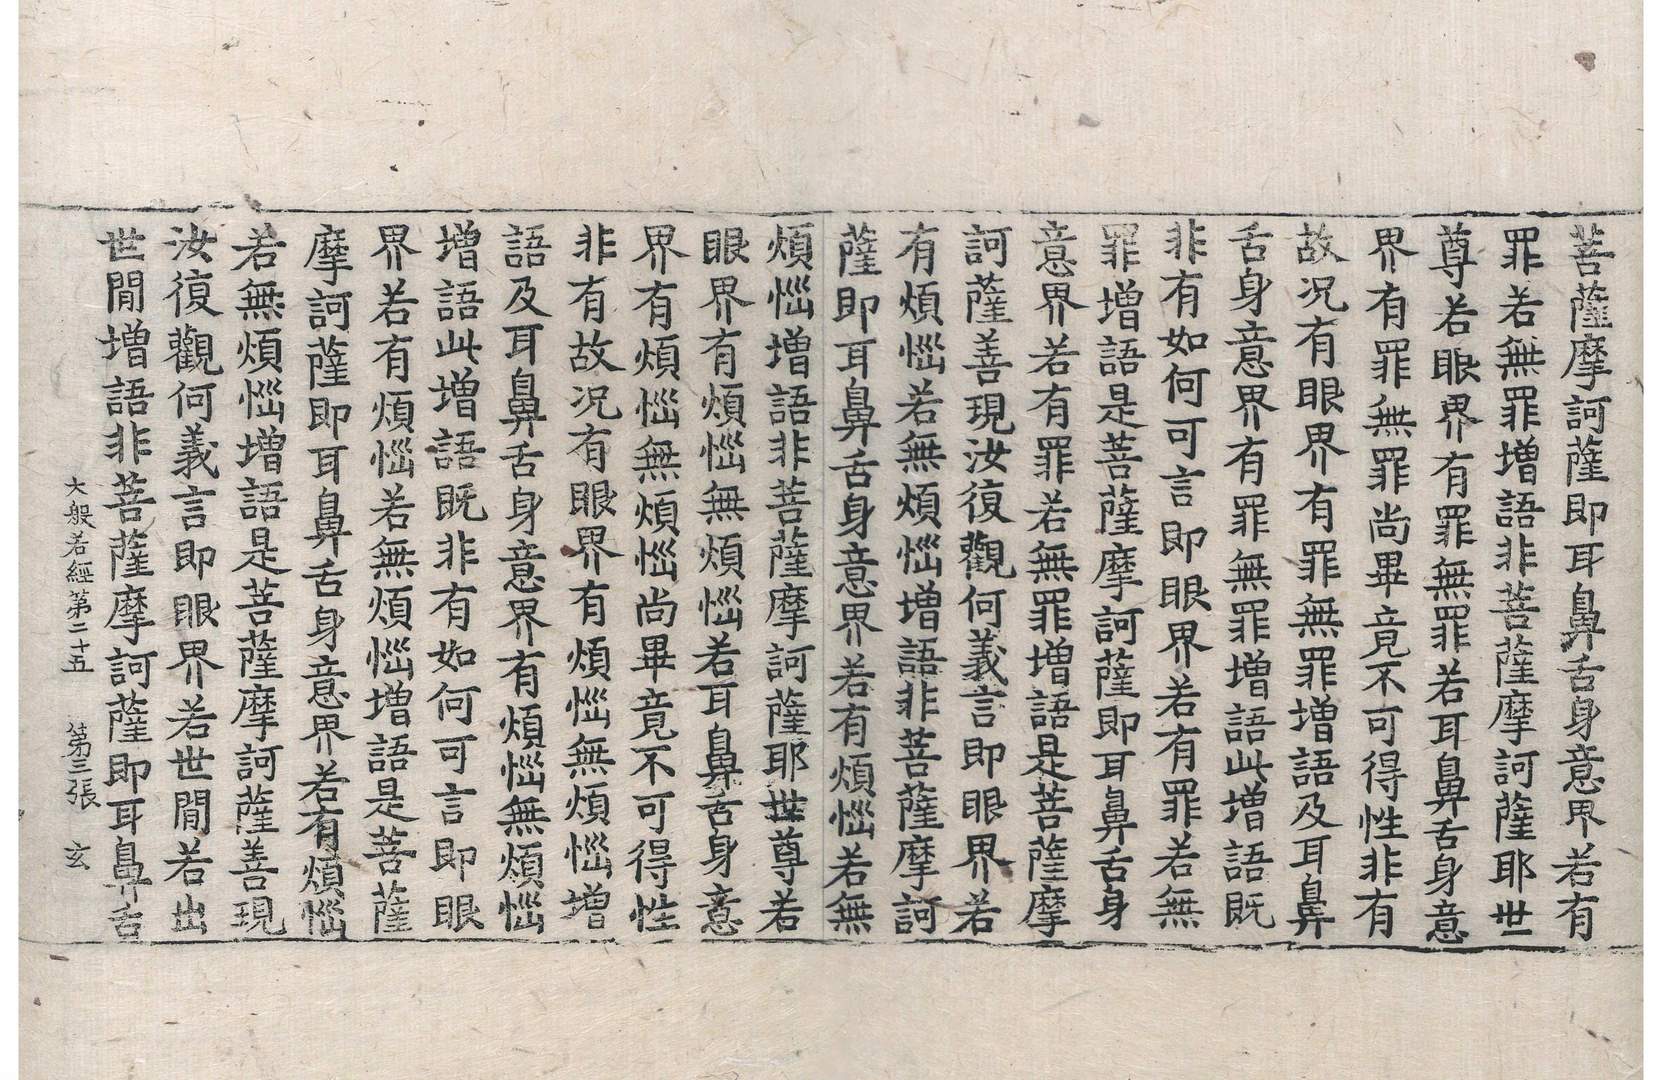 菩薩摩訶薩即耳鼻舌身意界若有
罪若無罪增語非菩薩摩訶薩耶世
尊若眼界有罪無罪若耳鼻舌身意
界有罪無罪尚畢竟不可得性非有
故况有眼界有罪無罪增語及耳鼻
舌身意界有罪無罪增語此增語既
非有如何可言即眼界若有罪若無
罪增語是菩薩摩訶薩即耳鼻舌身
意界若有罪若無罪增語是菩薩摩
訶薩善現汝復觀何義言即眼界若
有煩惱若無煩惱增語非菩薩摩訶
薩即耳鼻舌身意界若有煩惱若無
煩惱增語非菩薩摩訶薩耶世尊若
眼界有煩惱無煩惱若耳鼻舌身意
界有煩惱無煩惱尚畢竟不可得性
非有故况有眼界有煩惱無煩惱增
語及耳鼻舌身意界有煩惱無煩惱
增語此增語既非有如何可言即眼
界若有煩惱若無煩惱增語是菩薩
摩訶薩即耳鼻舌身意界若有煩惱
若無煩惱增語是菩薩摩訶薩善現
汝復觀何義言即眼界若世閒若出
世閒增語非菩薩摩訶薩即耳鼻舌
大般若經第二十五 第三張 玄